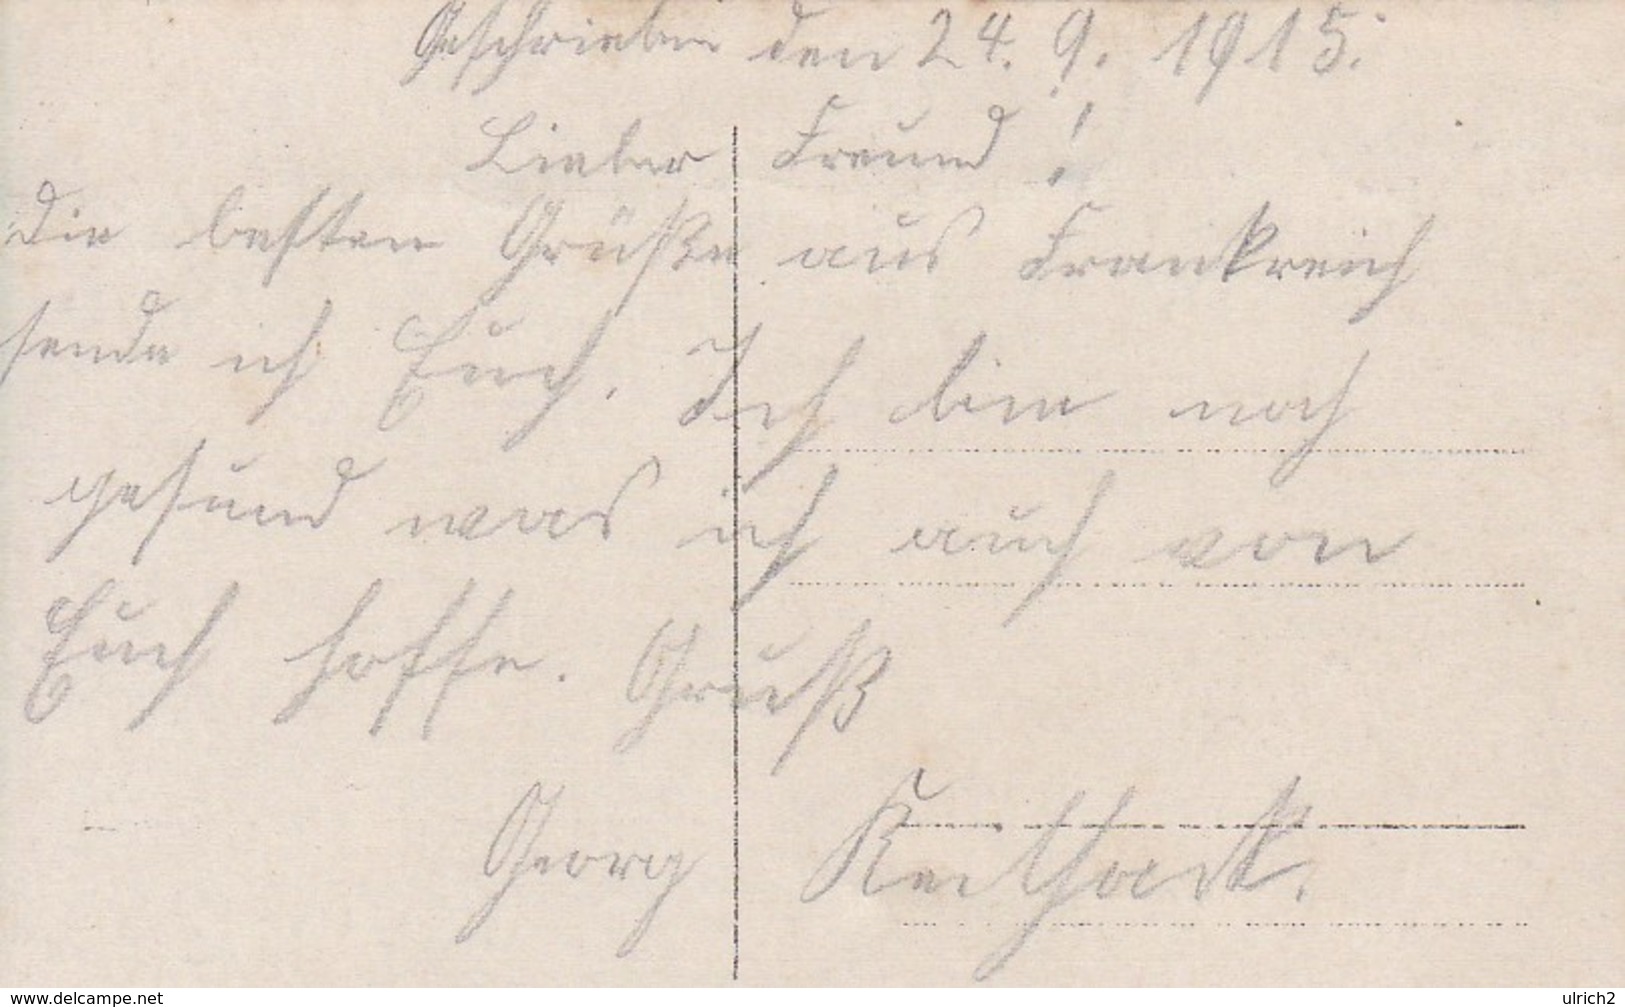 Geschrieben den 24. 9. 1915.
Lieber Freund!
Die besten Grüße aus Frankreich
sende ich Euch. Ich bin noch
gesund was ich auch von
Euch hoffe. Gruß
Georg
www.delcampe.net
ulrich2